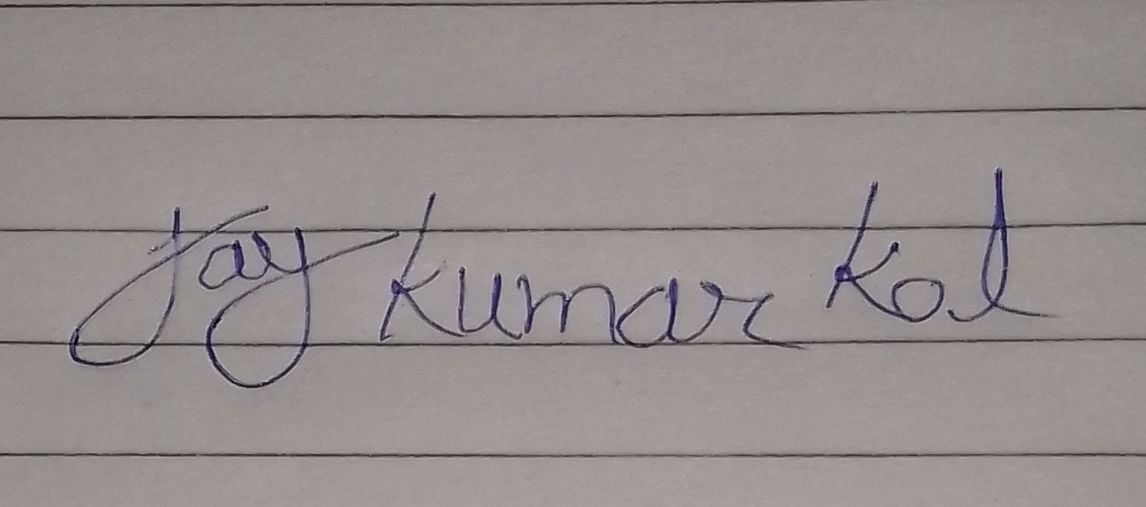 Jay Kumar Kol